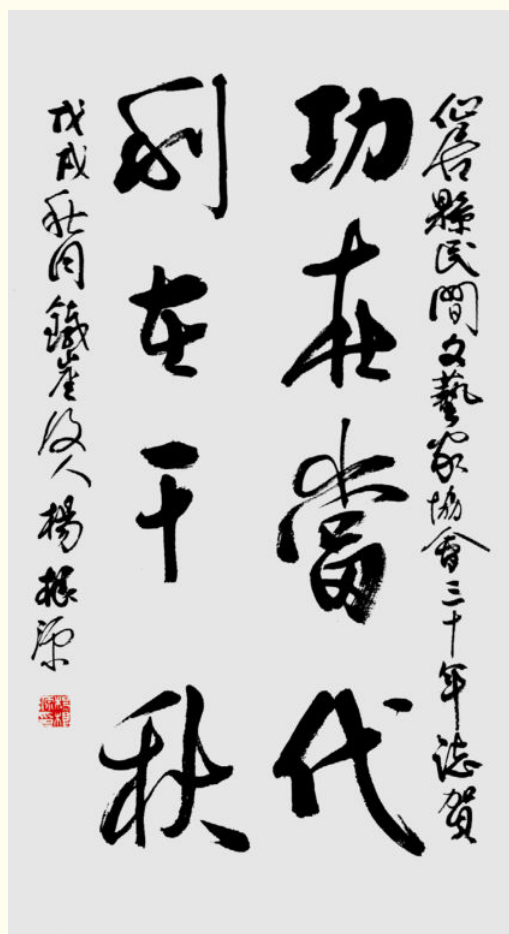 仙居縣民間文藝家協會三十年誌賀
功在當代
利在千秋
戊戌秋月鐵崖後人楊振源